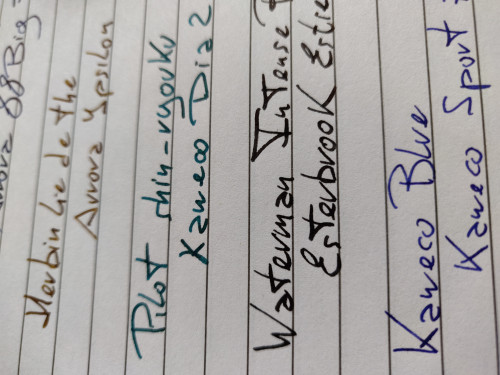 88 Big
Herbin Lie de the
Aurora Ypsilon
Pilot shin-ryouku
Kaweco Dia 2
Waterman Intense
Esterbrook Estie
Kaweco Blue
Kaweco Sport